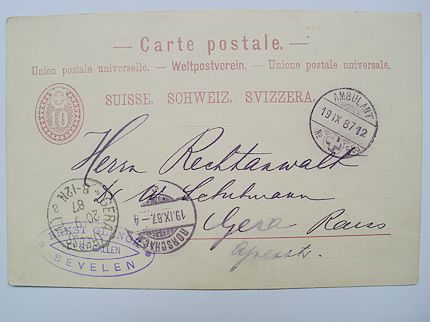 — Carte postale. —
Union postale universelle. — Weltpostverein. — Unione postale universale.
SUISSE. SCHWEIZ. SVIZZERA.
10
AMBULANT
19 IX 87 12
No
Herrn Rechtanwalt
Dr Schuhmann
Gera Reuss
GERA
20 9
87
8-12N
RORSCHACH
19.IX.87.-4
ERNST
SEVELEN